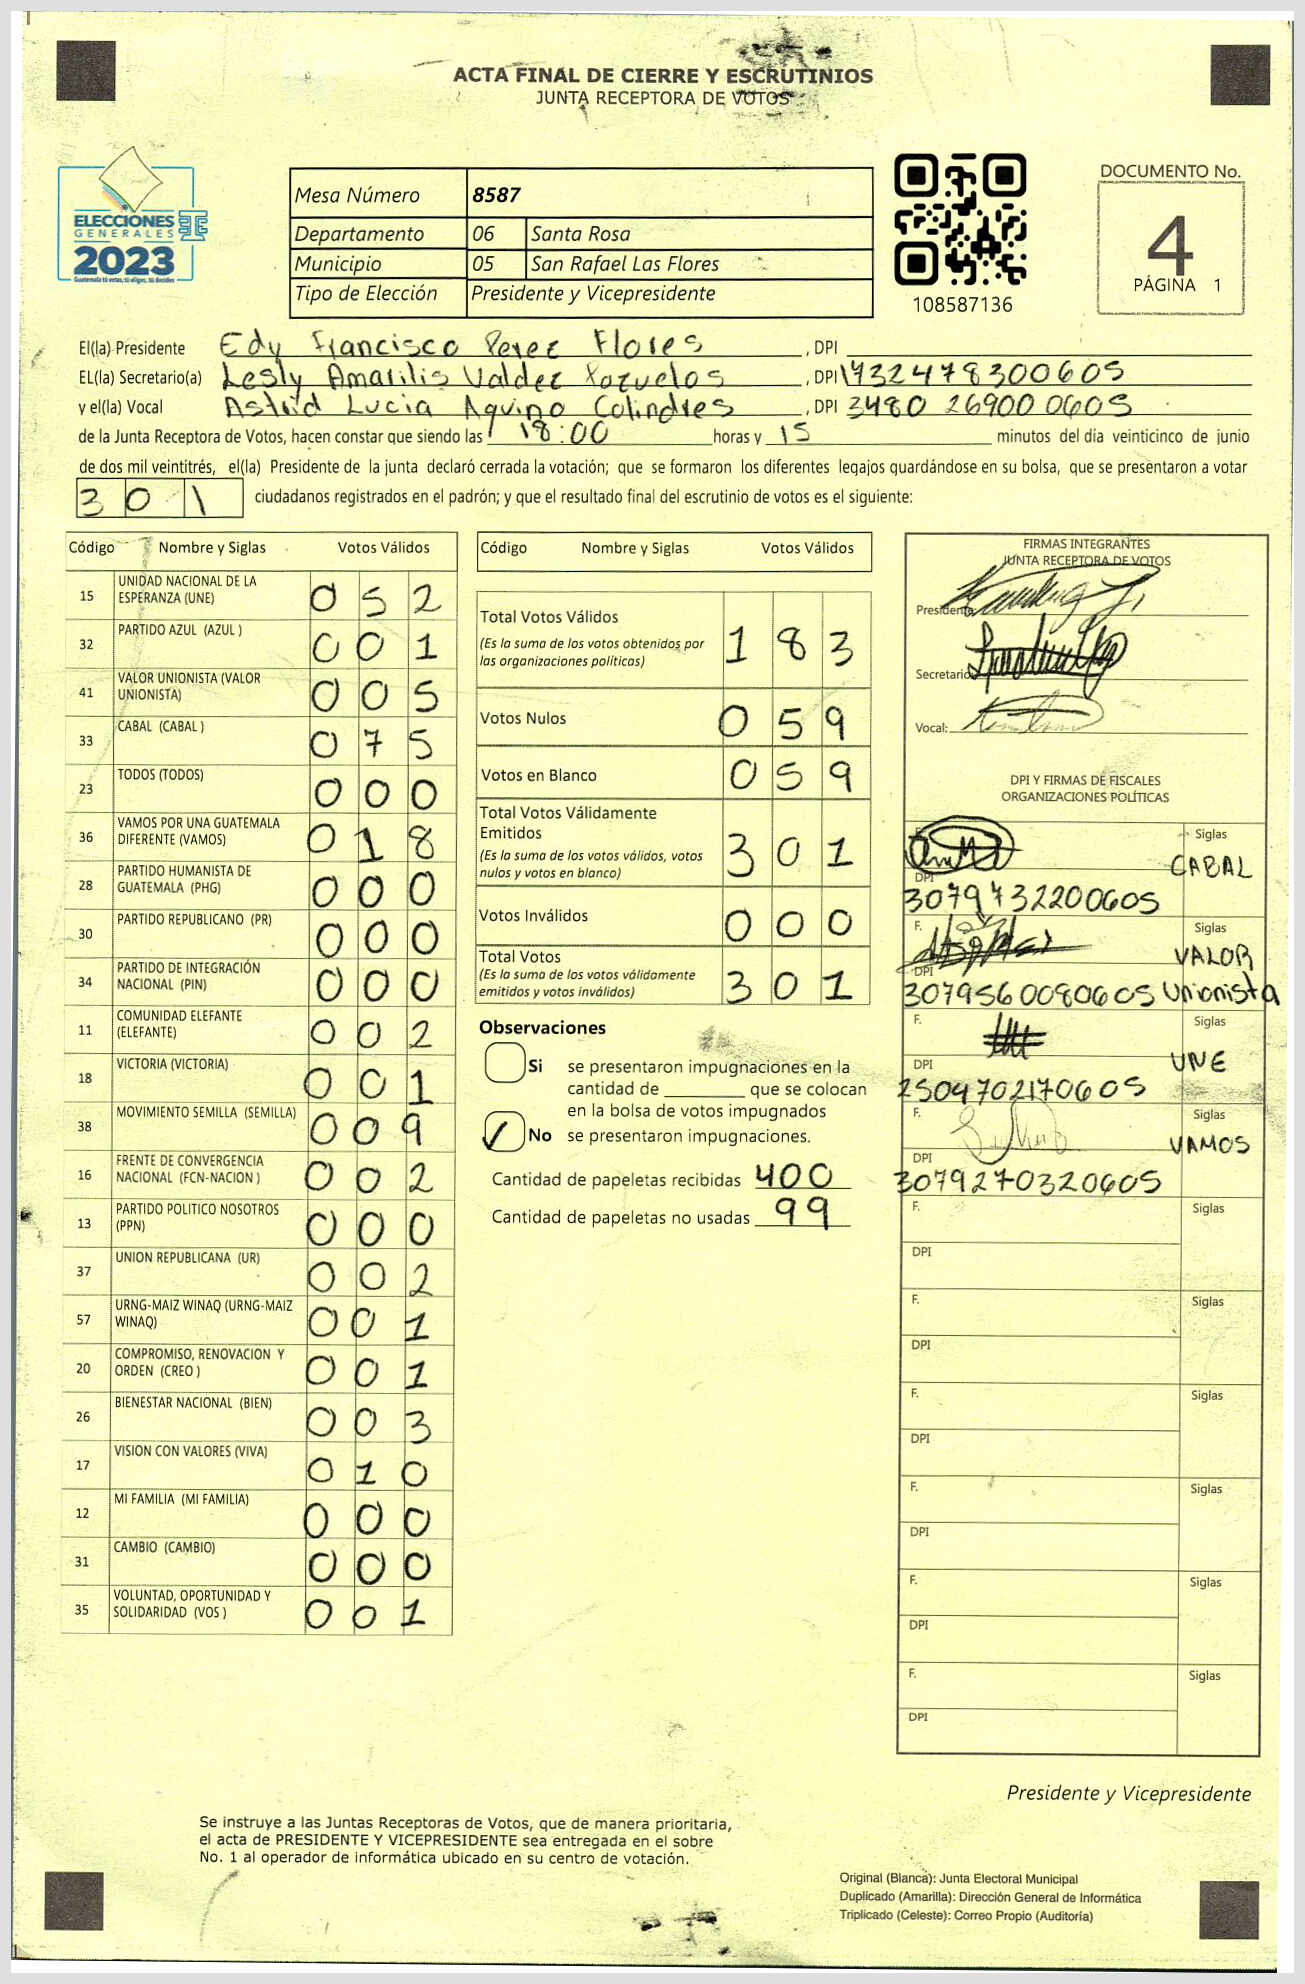 ACTA FINAL DE CIERRE Y ESCRUTINIOS
JUNTA RECEPTORA DE VOTOS
ELECCIONES
GENERALES
2023
Guatemala tú votas, tú eliges, tú decides
Mesa Número 8587
Departamento 06 Santa Rosa
Municipio 05 San Rafael Las Flores
Tipo de Elección Presidente y Vicepresidente
108587136
DOCUMENTO No.
4
PÁGINA 1
El(la) Presidente Edy Francisco Perez Flores , DPI
EL(la) Secretario(a) Lesly Amarilis Valdez Pozuelos , DPI 1732478300605
y el(la) Vocal Astrid Lucia Aquino Colindres , DPI 3480 26900 0605
de la Junta Receptora de Votos, hacen constar que siendo las 18:00 horas y 15 minutos del día veinticinco de junio
de dos mil veintitrés, el(la) Presidente de la junta declaró cerrada la votación; que se formaron los diferentes legajos guardándose en su bolsa, que se presentaron a votar
301 ciudadanos registrados en el padrón; y que el resultado final del escrutinio de votos es el siguiente:
Código Nombre y Siglas Votos Válidos
15 UNIDAD NACIONAL DE LA ESPERANZA (UNE) 052
32 PARTIDO AZUL (AZUL ) 001
41 VALOR UNIONISTA (VALOR UNIONISTA) 005
33 CABAL (CABAL ) 075
23 TODOS (TODOS) 000
36 VAMOS POR UNA GUATEMALA DIFERENTE (VAMOS) 018
28 PARTIDO HUMANISTA DE GUATEMALA (PHG) 000
30 PARTIDO REPUBLICANO (PR) 000
34 PARTIDO DE INTEGRACIÓN NACIONAL (PIN) 000
11 COMUNIDAD ELEFANTE (ELEFANTE) 002
18 VICTORIA (VICTORIA) 001
38 MOVIMIENTO SEMILLA (SEMILLA) 009
16 FRENTE DE CONVERGENCIA NACIONAL (FCN-NACION ) 002
13 PARTIDO POLITICO NOSOTROS (PPN) 000
37 UNION REPUBLICANA (UR) 002
57 URNG-MAIZ WINAQ (URNG-MAIZ WINAQ) 001
20 COMPROMISO, RENOVACION Y ORDEN (CREO ) 001
26 BIENESTAR NACIONAL (BIEN) 003
17 VISION CON VALORES (VIVA) 010
12 MI FAMILIA (MI FAMILIA) 000
31 CAMBIO (CAMBIO) 000
35 VOLUNTAD, OPORTUNIDAD Y SOLIDARIDAD (VOS ) 001
Código Nombre y Siglas Votos Válidos
Total Votos Válidos 183
(Es la suma de los votos obtenidos por
las organizaciones políticas)
Votos Nulos 059
Votos en Blanco 059
Total Votos Válidamente
Emitidos 301
(Es la suma de los votos válidos, votos
nulos y votos en blanco)
Votos Inválidos 000
Total Votos 301
(Es la suma de los votos válidamente
emitidos y votos inválidos)
Observaciones
Si se presentaron impugnaciones en la
cantidad de ________ que se colocan
en la bolsa de votos impugnados
✓ No se presentaron impugnaciones.
Cantidad de papeletas recibidas 400
Cantidad de papeletas no usadas 99
FIRMAS INTEGRANTES
JUNTA RECEPTORA DE VOTOS
Presidente:
Secretario
Vocal:
DPI Y FIRMAS DE FISCALES
ORGANIZACIONES POLÍTICAS
F. Siglas
CABAL
DPI
3079732200605
F. Siglas
VALOR
DPI
3079560080605 Unionista
F. Siglas
UNE
DPI
2504702170605
F. Siglas
VAMOS
DPI
3079270320605
F. Siglas
DPI
F. Siglas
DPI
F. Siglas
DPI
F. Siglas
DPI
F. Siglas
DPI
F. Siglas
DPI
Presidente y Vicepresidente
Se instruye a las Juntas Receptoras de Votos, que de manera prioritaria,
el acta de PRESIDENTE Y VICEPRESIDENTE sea entregada en el sobre
No. 1 al operador de informática ubicado en su centro de votación.
Original (Blanca): Junta Electoral Municipal
Duplicado (Amarilla): Dirección General de Informática
Triplicado (Celeste): Correo Propio (Auditoría)